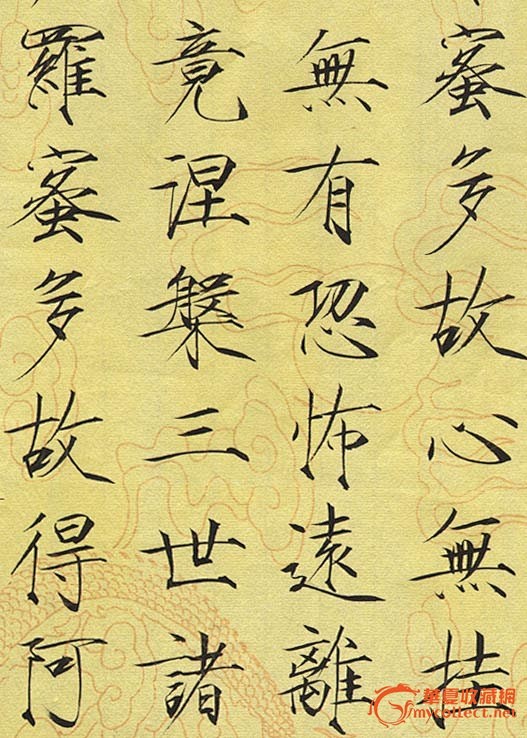 蜜多故心無挂
無有恐怖遠離
竟涅槃三世諸
羅蜜多故得阿
華夏收藏网
mycollect.net